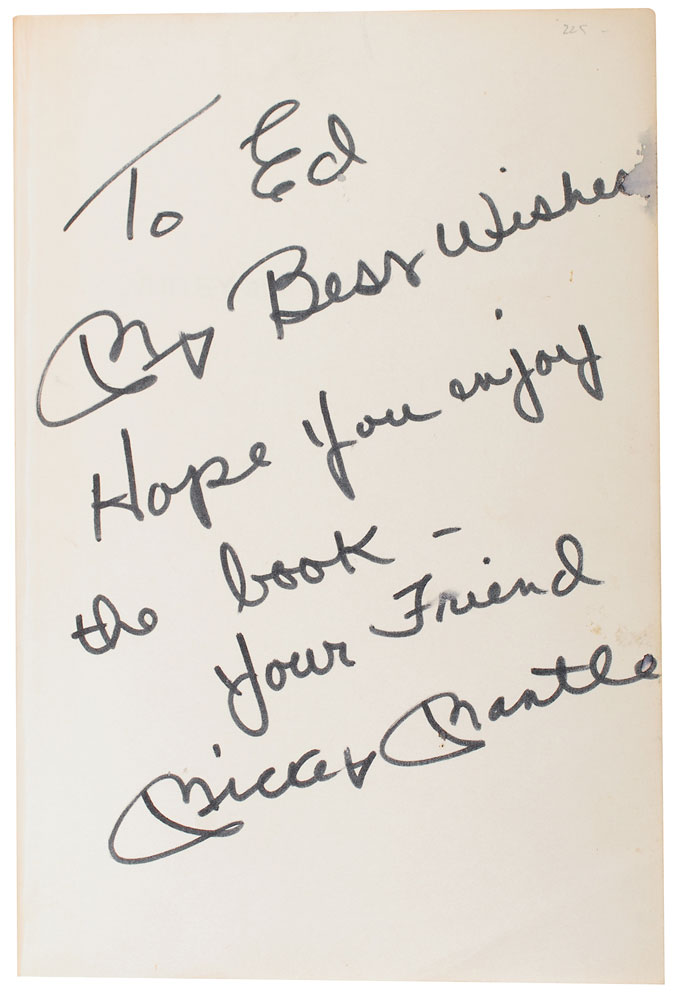 225 -
To Ed
My Best Wishes
Hope you enjoy
the book -
Your Friend
Mickey Mantle